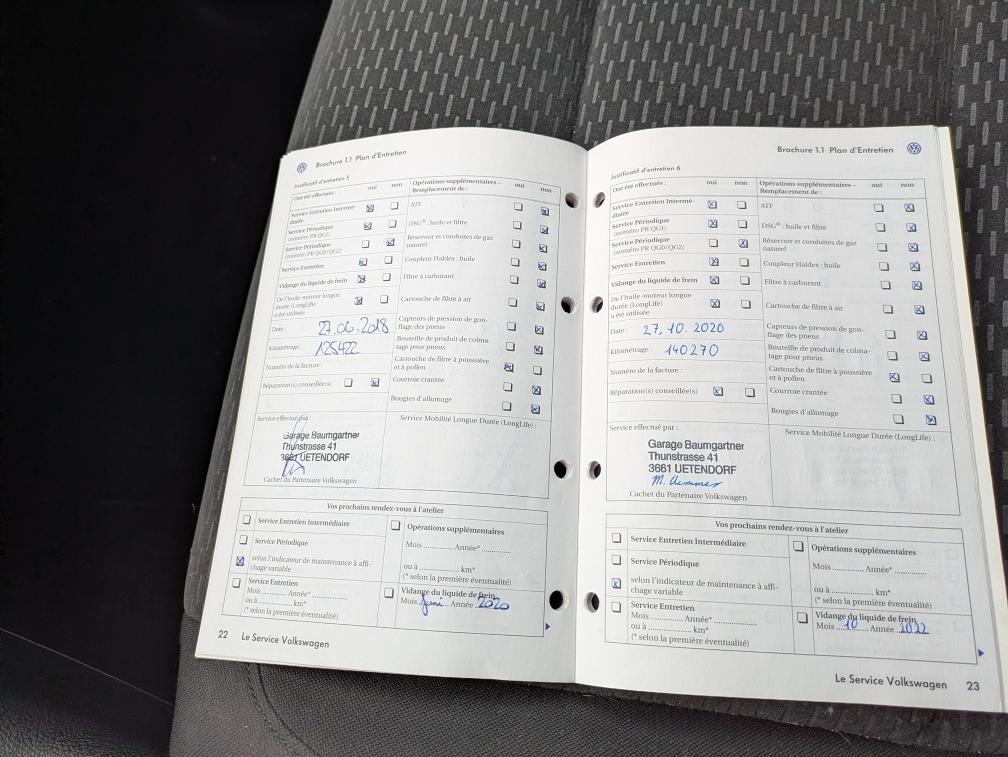 Brochure 1.1 Plan d'Entretien
Justificatif d'entretien 5
Ont été effectués : oui non
Service Entretien Intermé-
diaire
Service Périodique
(numéro PR QG1)
Service Périodique
(numéro PR QG0/QG2)
Service Entretien
Vidange du liquide de frein
De l'huile-moteur longue
durée (LongLife)
a été utilisée
Date : 27.06.2018
Kilométrage : 125422
Numéro de la facture :
Réparation(s) conseillée(s)
Opérations supplémentaires –
Remplacement de : oui non
ATF
DSG® : huile et filtre
Réservoir et conduites de gaz
naturel
Coupleur Haldex : huile
Filtre à carburant
Cartouche de filtre à air
Capteurs de pression de gon-
flage des pneus
Bouteille de produit de colma-
tage pour pneus
Cartouche de filtre à poussière
et à pollen
Courroie crantée
Bougies d'allumage
Service effectué par :
Garage Baumgartner
Thunstrasse 41
3661 UETENDORF
Cachet du Partenaire Volkswagen
Service Mobilité Longue Durée (LongLife) :
Vos prochains rendez-vous à l'atelier
Service Entretien Intermédiaire
Service Périodique
selon l'indicateur de maintenance à affi-
chage variable
Service Entretien
Mois ............ Année* ............
ou à ............ km*
(* selon la première éventualité)
Opérations supplémentaires
Mois ............ Année* ............
ou à ............ km*
(* selon la première éventualité)
Vidange du liquide de frein
Mois Juni Année 2020
22 Le Service Volkswagen
Brochure 1.1 Plan d'Entretien
Justificatif d'entretien 6
Ont été effectués : oui non
Service Entretien Intermé-
diaire
Service Périodique
(numéro PR QG1)
Service Périodique
(numéro PR QG0/QG2)
Service Entretien
Vidange du liquide de frein
De l'huile-moteur longue
durée (LongLife)
a été utilisée
Date : 27.10.2020
Kilométrage : 140270
Numéro de la facture :
Réparation(s) conseillée(s)
Opérations supplémentaires –
Remplacement de : oui non
ATF
DSG® : huile et filtre
Réservoir et conduites de gaz
naturel
Coupleur Haldex : huile
Filtre à carburant
Cartouche de filtre à air
Capteurs de pression de gon-
flage des pneus
Bouteille de produit de colma-
tage pour pneus
Cartouche de filtre à poussière
et à pollen
Courroie crantée
Bougies d'allumage
Service effectué par :
Garage Baumgartner
Thunstrasse 41
3661 UETENDORF
Cachet du Partenaire Volkswagen
Service Mobilité Longue Durée (LongLife) :
Vos prochains rendez-vous à l'atelier
Service Entretien Intermédiaire
Service Périodique
selon l'indicateur de maintenance à affi-
chage variable
Service Entretien
Mois ............ Année* ............
ou à ............ km*
(* selon la première éventualité)
Opérations supplémentaires
Mois ............ Année* ............
ou à ............ km*
(* selon la première éventualité)
Vidange du liquide de frein
Mois 10 Année 2022
Le Service Volkswagen 23